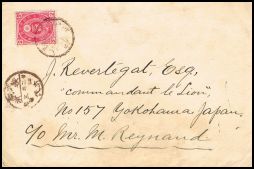 J. Revertégat, Esq,
"commandant le Lion",
No 157 Yokohama Japan,
c/o Mr. M. Reynaud